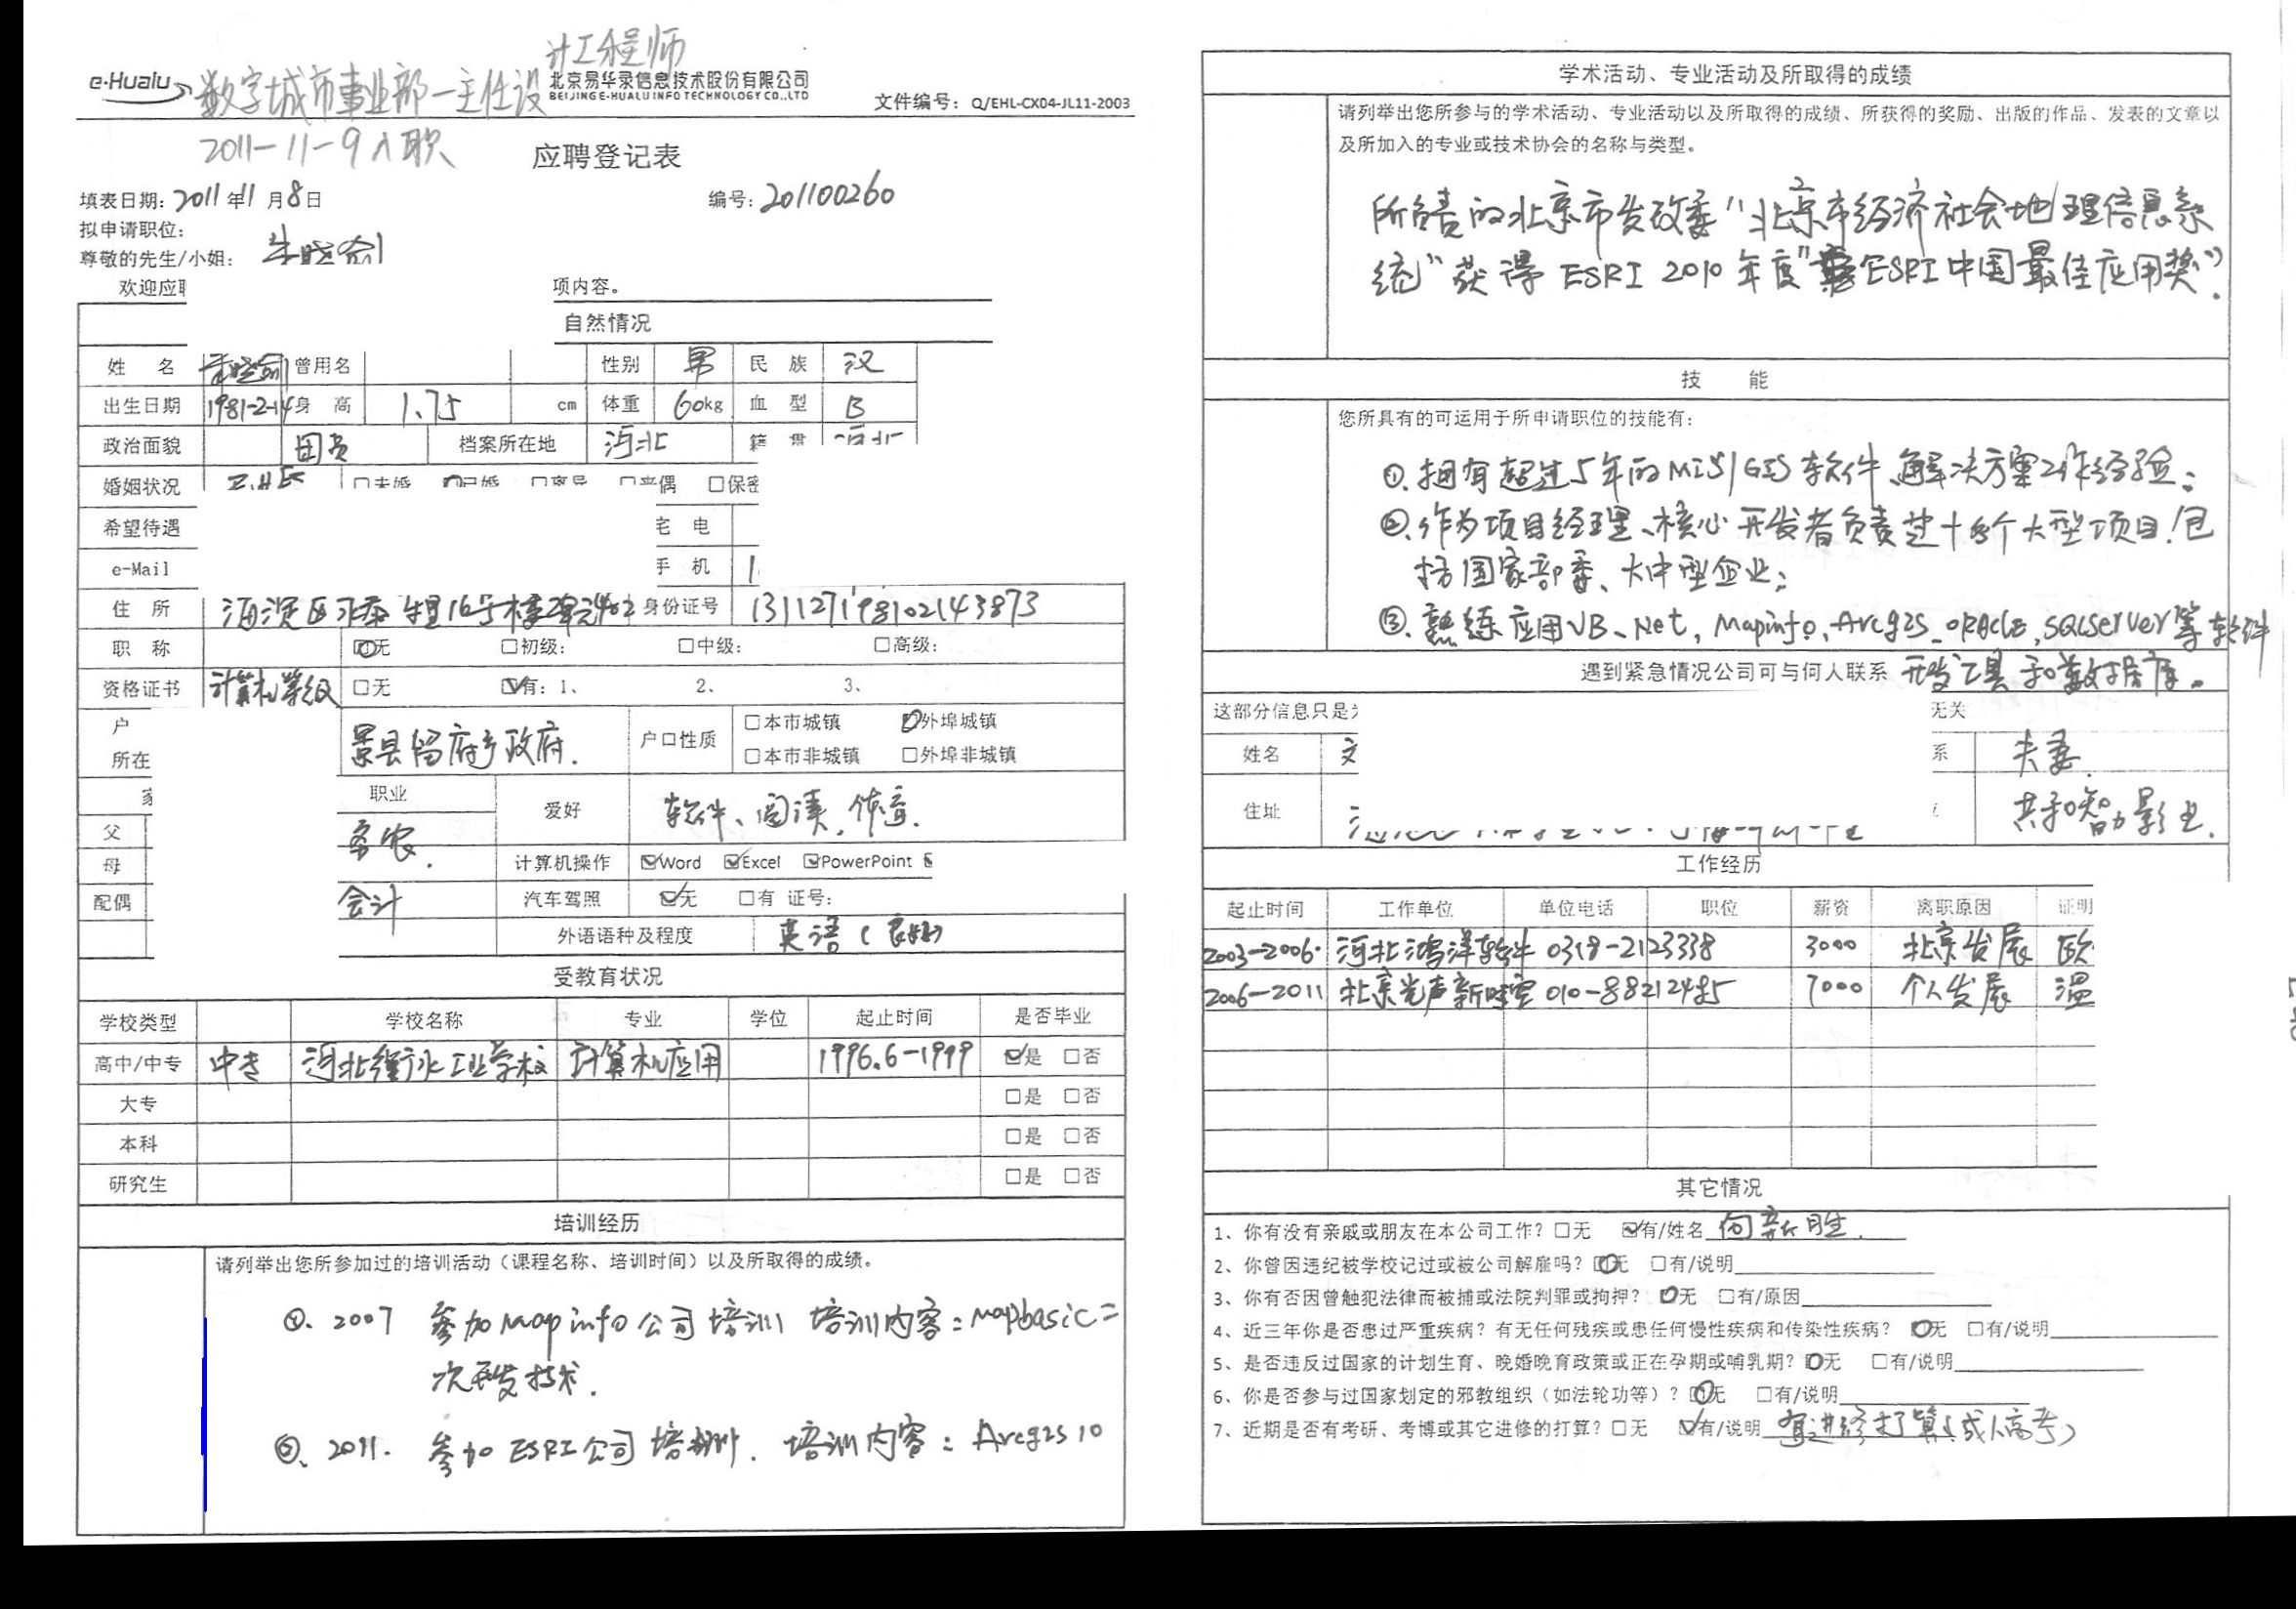 计工程师
e-Hualu 数字城市事业部—主任设 北京易华录信息技术股份有限公司
BEIJING E-HUALU INFO TECHNOLOGY CO.,LTD
文件编号：Q/EHL-CX04-JL11-2003
2011-11-9入职
应聘登记表
填表日期：2011年11月8日 编号：201100260
拟申请职位：
尊敬的先生/小姐：
欢迎应 项内容。
自然情况
姓 名 曾用名 性别 男 民 族 汉
出生日期 1981-2-14 身 高 1.75 cm 体重 60kg 血 型 B
政治面貌 团员 档案所在地 河北 籍 贯 河北
婚姻状况 □未婚 已婚 □离异 □丧偶 □保密
希望待遇 宅 电
e-Mail 手 机 1
住 所 海淀区 16号楼2单元402 身份证号 131127198102143873
职 称 ☑无 □初级： □中级： □高级：
资格证书 计算机等级 □无 ☑有：1、 2、 3、
户 景县留府乡政府. 户口性质 □本市城镇 ☑外埠城镇
所在 □本市非城镇 □外埠非城镇
家 职业 爱好 软件、阅读、体育.
父 务农.
母 计算机操作 ☑Word ☑Excel ☑PowerPoint
配偶 会计 汽车驾照 ☑无 □有 证号：
外语语种及程度 英语（良好）
受教育状况
学校类型 学校名称 专业 学位 起止时间 是否毕业
高中/中专 中专 河北衡水工业学校 计算机应用 1996.6-1999 ☑是 □否
大专 □是 □否
本科 □是 □否
研究生 □是 □否
培训经历
请列举出您所参加过的培训活动（课程名称、培训时间）以及所取得的成绩。
①. 2007 参加Mapinfo公司培训 培训内容：mapbasic二
次开发技术.
②. 2011. 参加ESRI公司培训. 培训内容：Arcgis10
学术活动、专业活动及所取得的成绩
请列举出您所参与的学术活动、专业活动以及所取得的成绩、所获得的奖励、出版的作品、发表的文章以
及所加入的专业或技术协会的名称与类型。
所负责的北京市发改委“北京市经济社会地理信息系
统”获得ESRI 2010年度“ESRI中国最佳应用奖”.
技 能
您所具有的可运用于所申请职位的技能有：
①.拥有超过5年的MIS/GIS软件、解决方案工作经验；
②.作为项目经理、核心开发者负责过十多个大型项目.包
括国家部委、大中型企业；
③.熟练应用VB、Net, Mapinfo, Arcgis, oracle, SQLServer等软件
遇到紧急情况公司可与何人联系 开发工具和数据库。
这部分信息只是为 无关
姓名 文 系 夫妻.
住址 共和智力影业.
工作经历
起止时间 工作单位 单位电话 职位 薪资 离职原因 证明
2003-2006. 河北鸿洋软件 0318-2123338 3000 北京发展 欧
2006-2011 北京光声新时空 010-88212485 7000 个人发展 温
其它情况
1、你有没有亲戚或朋友在本公司工作？□无 ☑有/姓名 何新胜.
2、你曾因违纪被学校记过或被公司解雇吗？☑无 □有/说明
3、你有否因曾触犯法律而被捕或法院判罪或拘押？☑无 □有/原因
4、近三年你是否患过严重疾病？有无任何残疾或患任何慢性疾病和传染性疾病？☑无 □有/说明
5、是否违反过国家的计划生育、晚婚晚育政策或正在孕期或哺乳期？☑无 □有/说明
6、你是否参与过国家划定的邪教组织（如法轮功等）？☑无 □有/说明
7、近期是否有考研、考博或其它进修的打算？□无 ☑有/说明 有进修打算（成人高考）